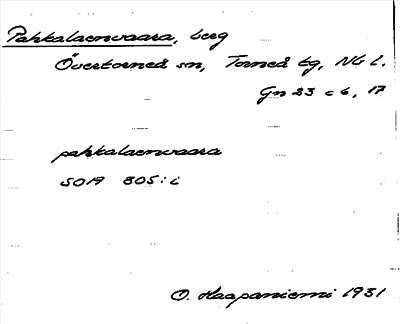 Pahkalaenvaara, berg
Övertorneå sn, Torneå tg, Nb l.
Gn 23 c 6, 17
pahkalaenvaara
5019 805:i
O. Haapaniemi 1931